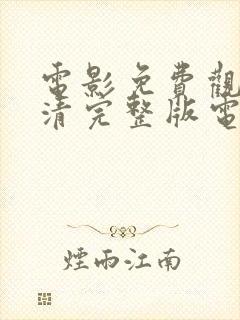 電影免費觀
清完整版電
煙雨江南